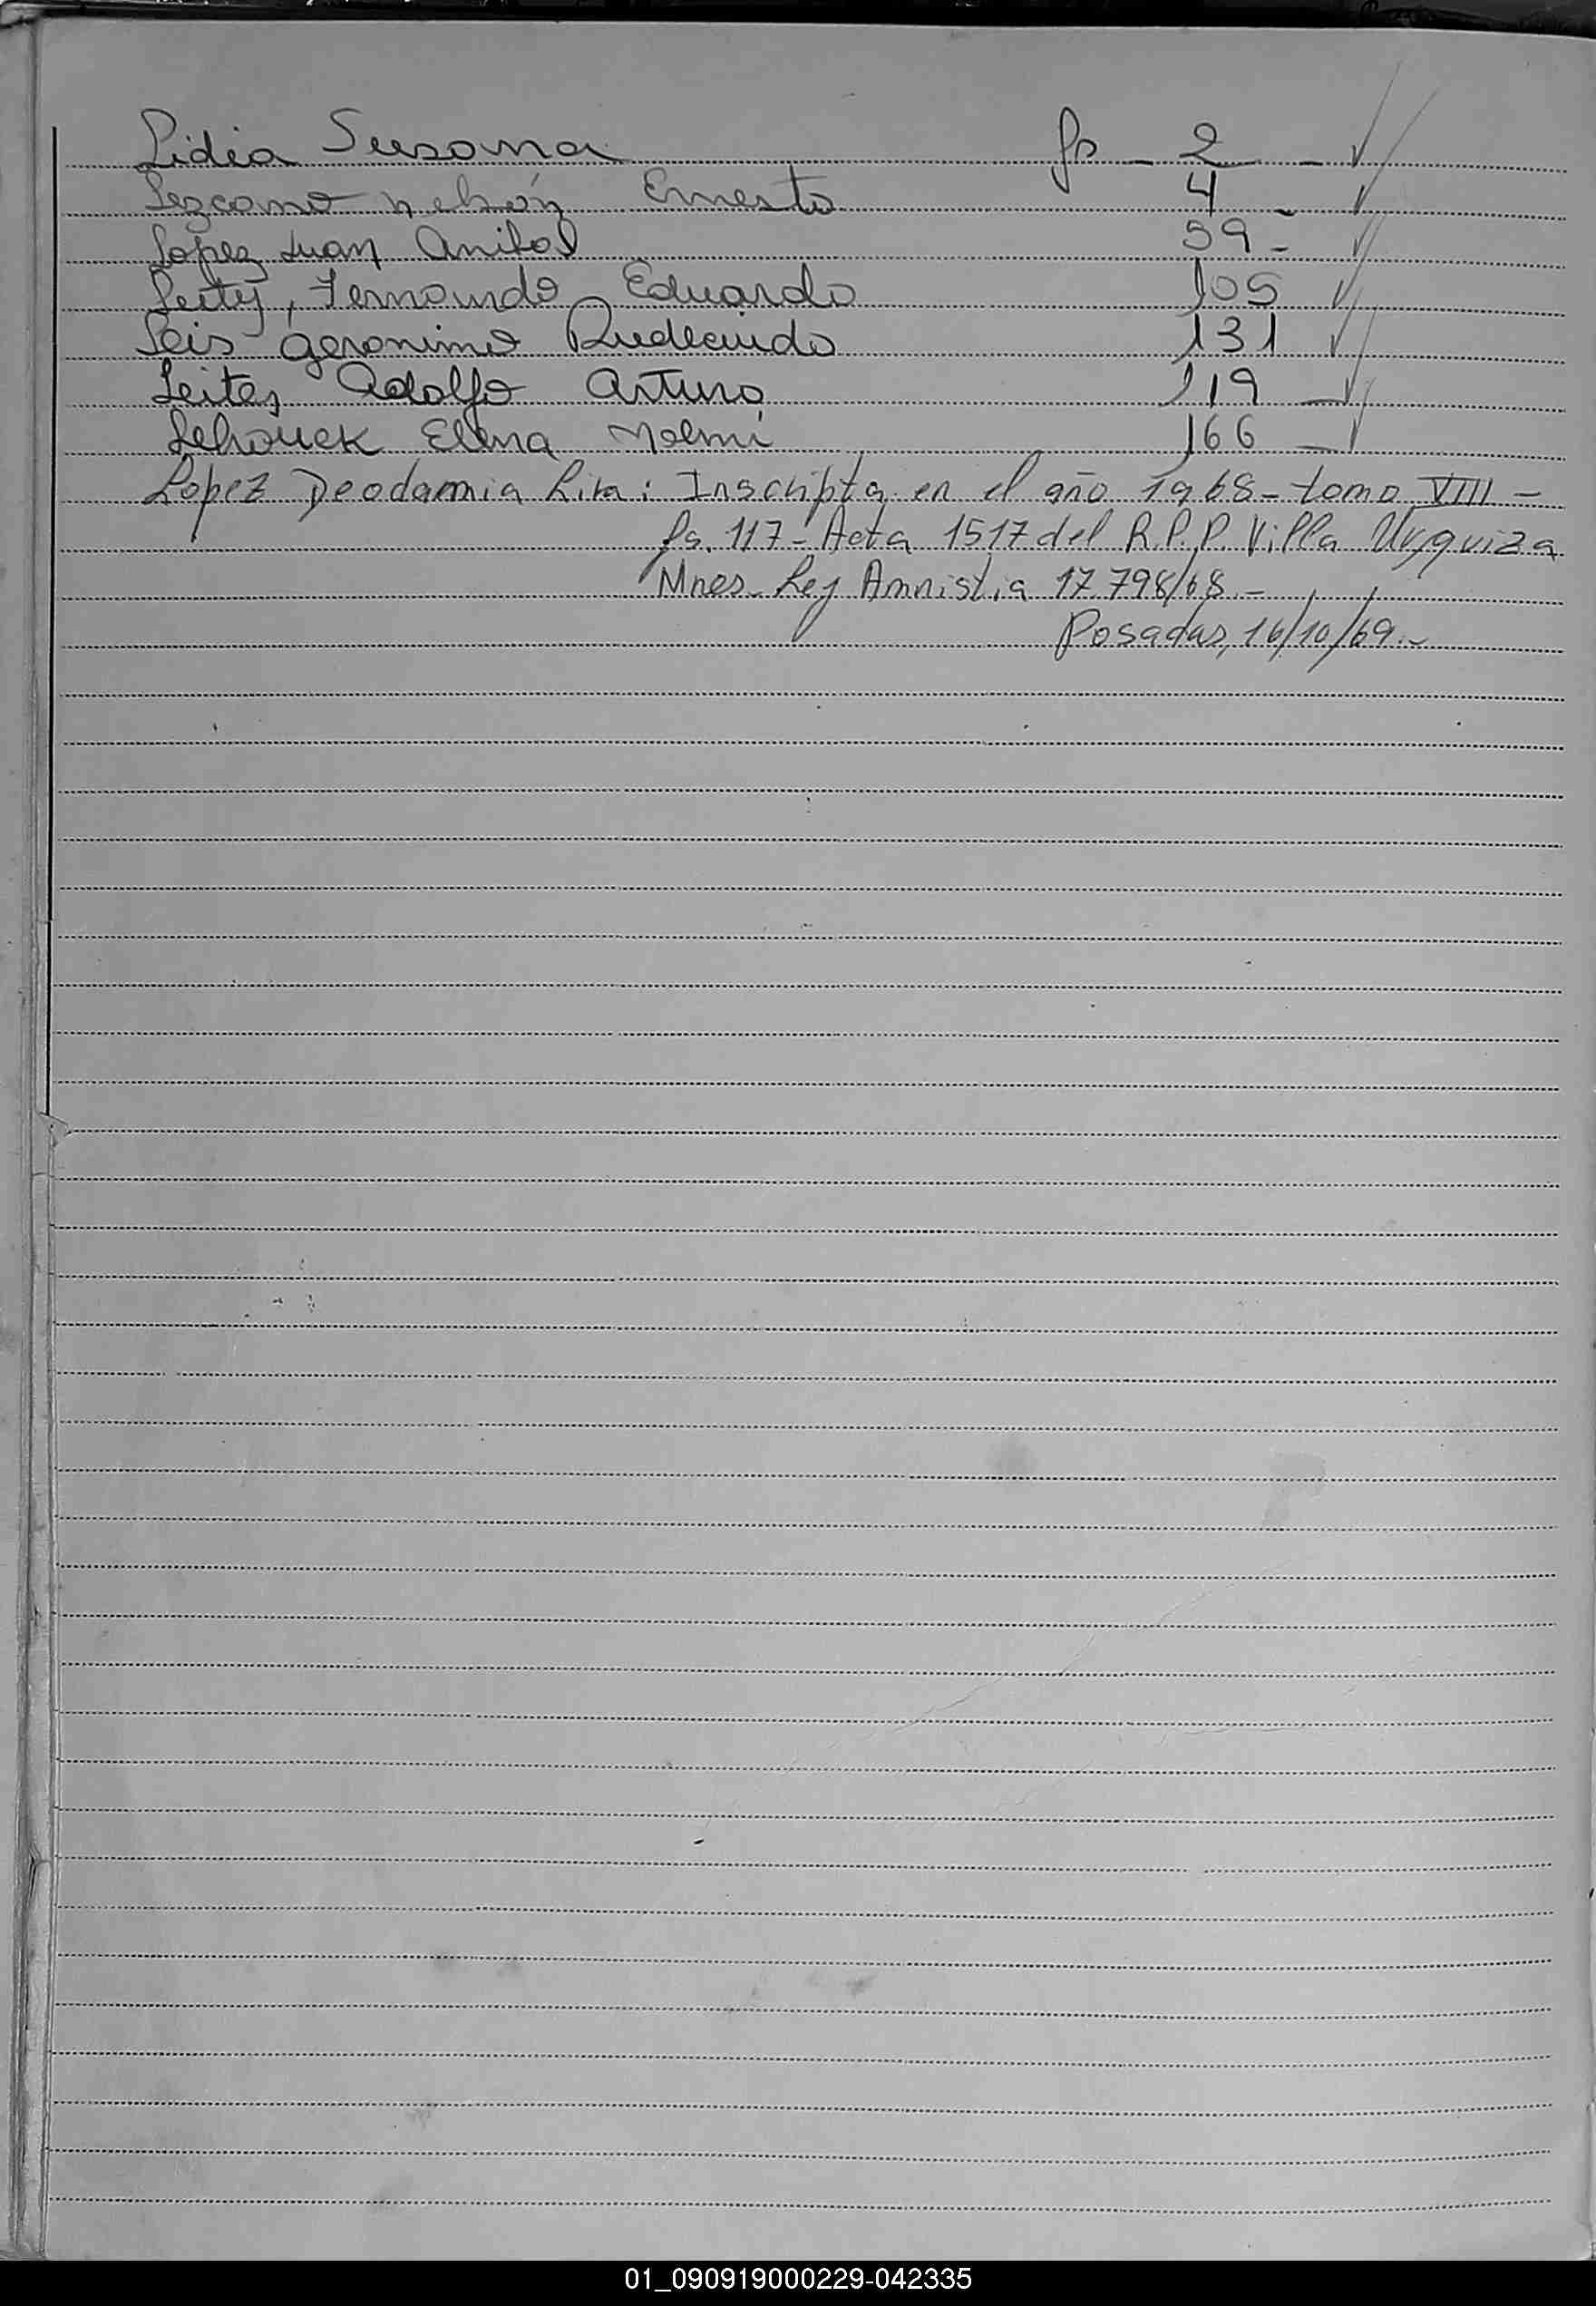 Lidia Susana fs - 2 - ✓
Lezcano Nelsón Ernesto 4 - ✓
Lopez Juan Anibal 59 - ✓
Leites, Fernando Eduardo 105 ✓
Leis Geronimo Rudecindo 131 ✓
Leites Adolfo Arturo 119 - ✓
Elena Noemí 166 - ✓
Lopez Deodamia Lira: Inscripta en el año 1968 - tomo VIII -
fs. 117 - Acta 1517 del R.P.P. Villa Urquiza
Mnes - Ley Amnistia 17.798/68.-
Posadas, 16/10/69.-
01_090919000229-042335